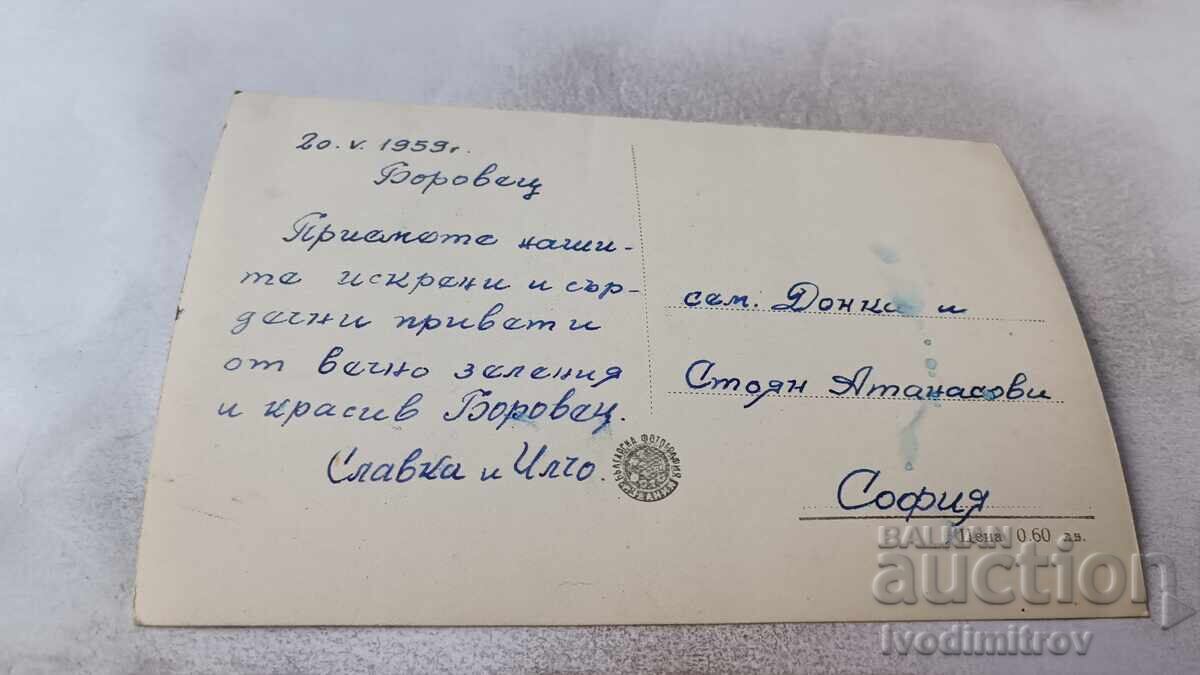 20. V. 1959 г.
Боровец
Приемете наши-
те искрени и сър-
дечни привети
от вечно зеления
и красив Боровец.
Славка и Илчо.
сем. Донка и
Стоян Атанасови
София
Цена 0.60 лв.
БЪЛГАРСКА ФОТОГРАФИЯ
BALKAN
auction
Ivodimitrov